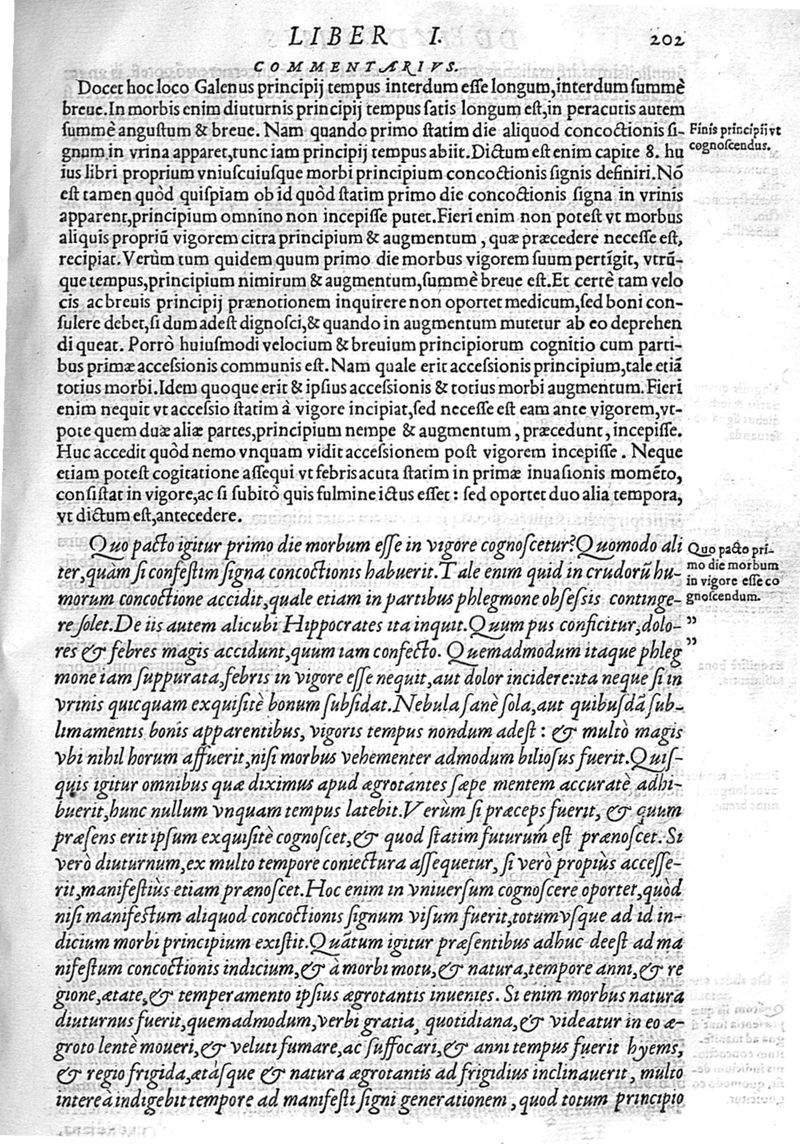 LIBER I.
202
COMMENTARIVS.
Docet hoc loco Galenus principij tempus interdum esse longum,interdum summè
breue.In morbis enim diuturnis principij tempus satis longum est,in peracutis autem
summè angustum & breue. Nam quando primo statim die aliquod concoctionis si-
gnum in vrina apparet,tunc iam principij tempus abiit.Dictum est enim capite 8. hu
ius libri proprium vniuscuiusque morbi principium concoctionis signis definiri.Nō
est tamen quòd quispiam ob id quòd statim primo die concoctionis signa in vrinis
apparent,principium omnino non incepisse putet.Fieri enim non potest vt morbus
aliquis propriū vigorem citra principium & augmentum , quæ præcedere necesse est,
recipiat.Verùm tum quidem quum primo die morbus vigorem suum pertigit, vtrū-
que tempus,principium nimirum & augmentum,summè breue est.Et certè tam velo
cis ac breuis principij prænotionem inquirere non oportet medicum,sed boni con-
sulere debet,si dum adest dignosci,& quando in augmentum mutetur ab eo deprehen
di queat. Porrò huiusmodi velocium & breuium principiorum cognitio cum parti-
bus primæ accessionis communis est. Nam quale erit accessionis principium,tale etiā
totius morbi.Idem quoque erit & ipsius accessionis & totius morbi augmentum.Fieri
enim nequit vt accessio statim à vigore incipiat,sed necesse est eam ante vigorem,vt-
pote quem duæ aliæ partes,principium nempe & augmentum , præcedunt, incepisse.
Huc accedit quòd nemo vnquam vidit accessionem post vigorem incepisse . Neque
etiam potest cogitatione assequi vt febris acuta statim in primæ inuasionis momēto,
consistat in vigore,ac si subitò quis fulmine ictus esset: sed oportet duo alia tempora,
vt dictum est,antecedere.
Finis principij vt
cognoscendus.
Quo pacto igitur primo die morbum esse in vigore cognoscetur?Quomodo ali
ter,quàm si confestim signa concoctionis habuerit.Tale enim quid in crudorū hu-
morum concoctione accidit,quale etiam in partibus phlegmone obsessis continge-
re solet.De iis autem alicubi Hippocrates ita inquit.Quum pus conficitur,dolo-
res & febres magis accidunt,quum iam confecto. Quemadmodum itaque phleg
mone iam suppurata,febris in vigore esse nequit,aut dolor incidere:ita neque si in
vrinis quicquam exquisitè bonum subsidat.Nebula sanè sola,aut quibusdā sub-
limamentis bonis apparentibus, vigoris tempus nondum adest : & multò magis
vbi nihil horum affuerit,nisi morbus vehementer admodum biliosus fuerit.Quis-
quis igitur omnibus quæ diximus apud ægrotantes sæpe mentem accuratè adhi-
buerit,hunc nullum vnquam tempus latebit.Verùm si præceps fuerit, & quum
præsens erit ipsum exquisitè cognoscet,& quod statim futurum est prænoscet.Si
verò diuturnum,ex multo tempore coniectura assequetur, si verò propiùs accesse-
rit,manifestiùs etiam prænoscet.Hoc enim in vniuersum cognoscere oportet,quòd
nisi manifestum aliquod concoctionis signum visum fuerit,totumvsque ad id in-
dicium morbi principium existit.Quātum igitur præsentibus adhuc deest ad ma
nifestum concoctionis indicium,& à morbi motu,& natura,tempore anni,& re
gione,ætate,& temperamento ipsius ægrotantis inuenies. Si enim morbus natura
diuturnus fuerit,quemadmodum,verbi gratia, quotidiana,& videatur in eo æ-
groto lentè moueri,& veluti fumare,ac suffocari,& anni tempus fuerit hyems,
& regio frigida,ætásque & natura ægrotantis ad frigidius inclinauerit, multo
interea indigebit tempore ad manifesti signi generationem , quod totum principio
Quo pacto pri-
mo die morbum
in vigore esse co
gnoscendum.
”
”